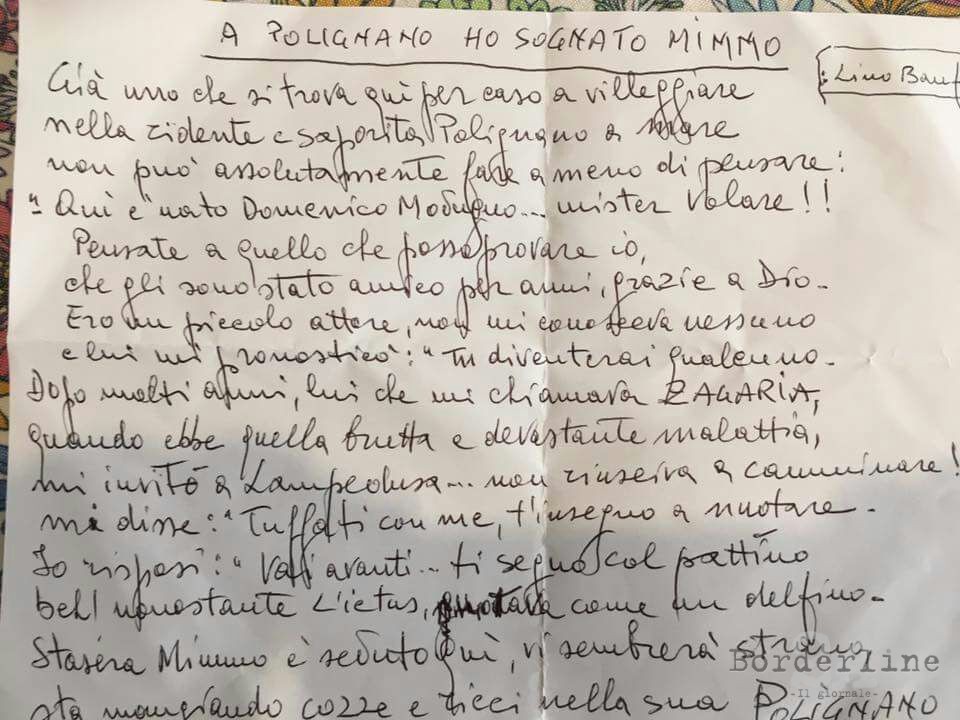 A POLIGNANO HO SOGNATO MIMMO
: Lino Banf
Già uno che si trova quì per caso a villeggiare
nella ridente e saporita Polignano a mare
non può assolutamente fare a meno di pensare:
"Quì è nato Domenico Modugno... mister Volare!!
Pensate a quello che posso provare io,
che gli sono stato amico per anni, grazie a Dio.
Ero un piccolo attore, non mi conosceva nessuno
e lui mi pronosticò: "Tu diventerai qualcuno.
Dopo molti anni, lui che mi chiamava ZAGARIA,
quando ebbe quella brutta e devastante malattia,
mi invitò a Lampedusa... non riusciva a camminare!
mi disse: "Tuffati con me, t'insegno a nuotare.
Io risposi: "Vai avanti... ti seguo col pattino
beh! nonostante L'ictus, nuotava come un delfino.
Stasera Mimmo è seduto quì, vi sembrerà strano,
sta mangiando cozze e ricci nella sua POLIGNANO
Borderline
-Il giornale-